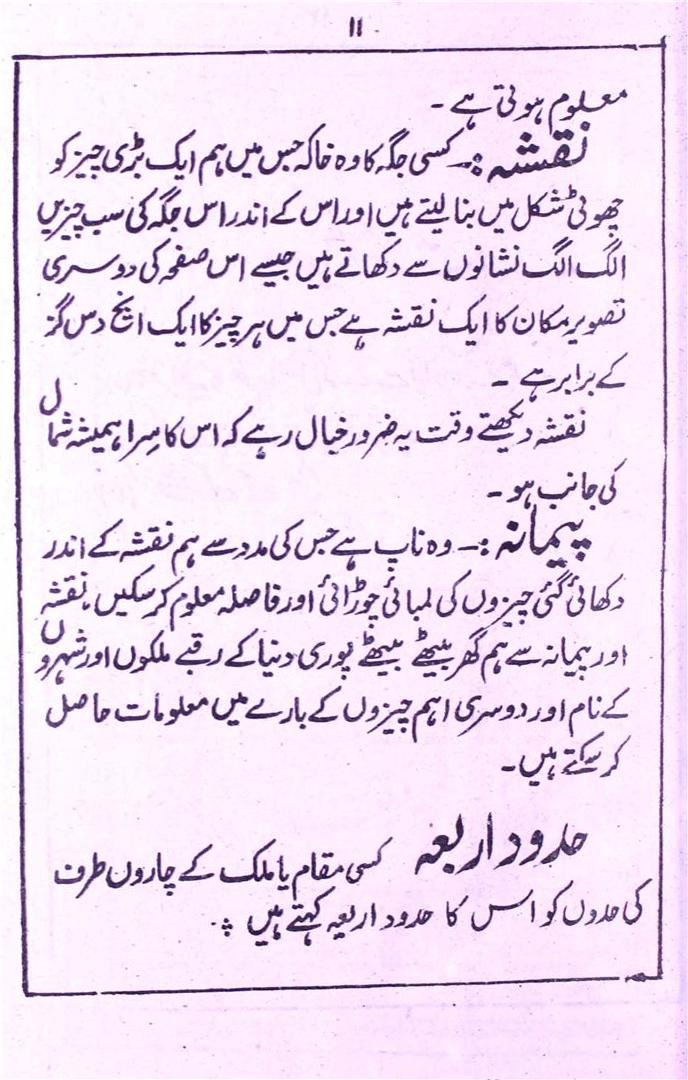 ۱۱
معلوم ہوتی ہے ۔
نقشہ :۔ کسی جگہ کا وہ خاکہ جس میں ہم ایک بڑی چیز کو
چھوٹی شکل میں بنا لیتے ہیں اور اس کے اندر اس جگہ کی سب چیزیں
الگ الگ نشانوں سے دکھاتے ہیں جیسے اس صفحہ کی دوسری
تصویر مکان کا ایک نقشہ ہے جس میں ہر چیز کا ایک انچ دس گز
کے برابر ہے ۔
نقشہ دیکھتے وقت یہ ضرور خیال رہے کہ اس کا سِرا ہمیشہ شمال
کی جانب ہو ۔
پیمانہ :۔ وہ ناپ ہے جس کی مدد سے ہم نقشہ کے اندر
دکھائی گئی چیزوں کی لمبائی چوڑائی اور فاصلہ معلوم کر سکیں، نقشہ
اور پیمانہ سے ہم گھر بیٹھے بیٹھے پوری دنیا کے رقبے ملکوں اور شہروں
کے نام اور دوسری اہم چیزوں کے بارے میں معلومات حاصل
کر سکتے ہیں ۔
حدود اربعہ کسی مقام یا ملک کے چاروں طرف
کی حدوں کو اس کا حدود اربعہ کہتے ہیں ؞